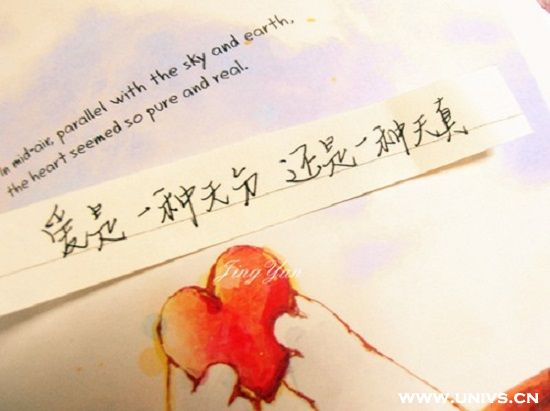 In mid-air, parallel with the sky and earth,
the heart seemed so pure and real.
爱是一种天分 还是一种天真
Jing Yan
WWW.UNIVS.CN